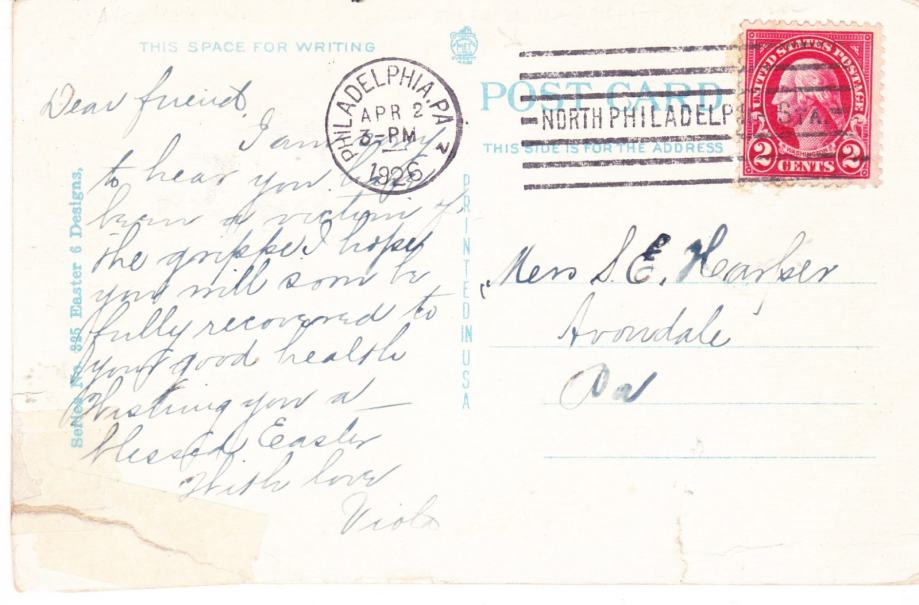 THIS SPACE FOR WRITING
Dear friend,
I am sorry
to hear you have
been a victim of
the grippe I hope
you will soon be
fully recovered to
your good health
Wishing you a
blessed Easter
With love
Viola
Series No. 325 Easter 6 Designs,
PRINTED IN USA
PHILADELPHIA, PA
APR 2
3-PM
1926
2
POST CARD
NORTH PHILADELPHIA STA.
THIS SIDE IS FOR THE ADDRESS
UNITED STATES POSTAGE
WASHINGTON
2 CENTS 2
S. E. Harper
Avondale
Pa